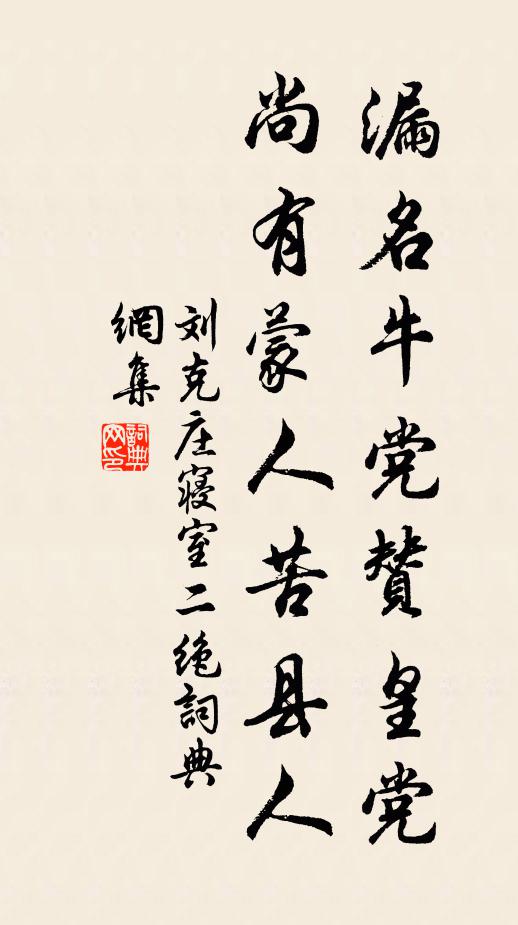 漏名牛党贊皇党
尚有蒙人苦县人
刘克庄寝室二绝詞典
網集
詞典
网印